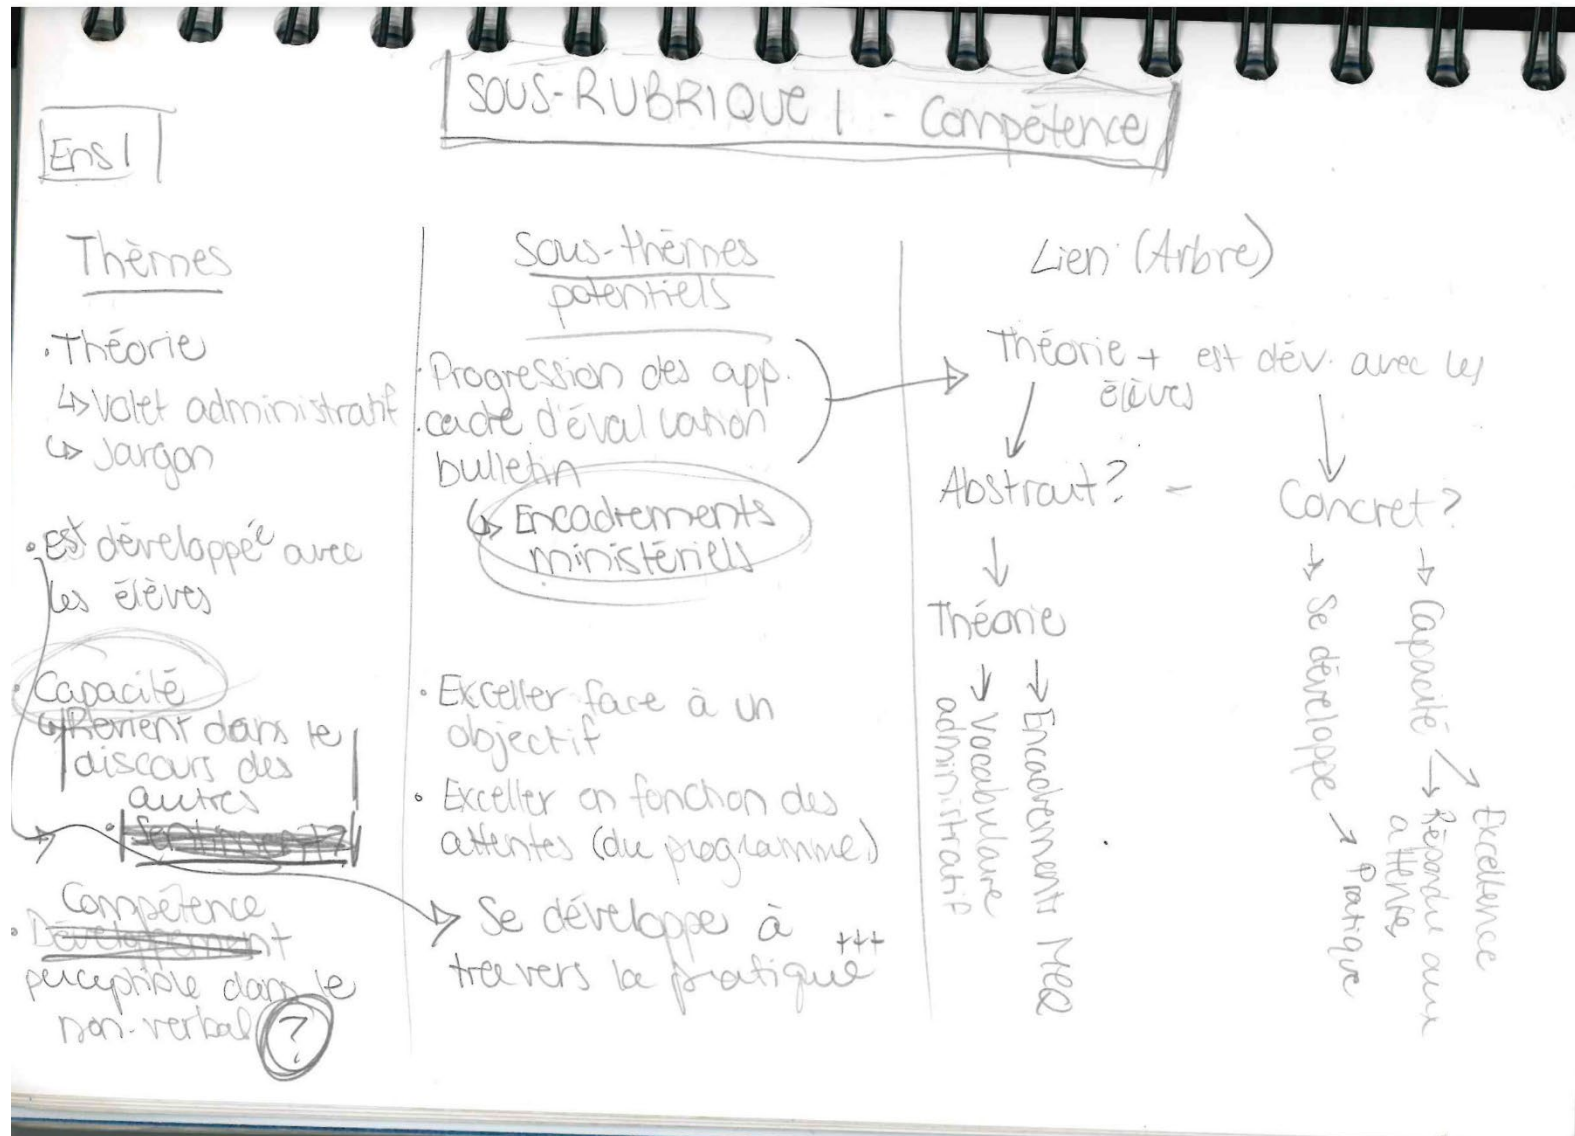 SOUS-RUBRIQUE 1 - Compétence
Ens 1
Thèmes
• Théorie
↳ Volet administratif
↳ Jargon
• Est développée avec
les élèves
• Capacité
↳ Revient dans le
discours des
autres
• Sentiment?
Compétence
• Développement
perceptible dans le
non-verbal ?
Sous-thèmes
potentiels
• Progression des app.
• cadre d'évaluation
bulletin
↳ Encadrements
ministériels
• Exceller face à un
objectif
• Exceller en fonction des
attentes (du programme)
Se développe à
travers la pratique +++
Lien (Arbre)
Théorie + est dév. avec les
élèves
Abstrait? - Concret?
Théorie
→ Encadrements MEQ
→ Vocabulaire
administratif
→ Se développe → Pratique
→ Capacité
→ Excellence
→ Répondre aux
attentes